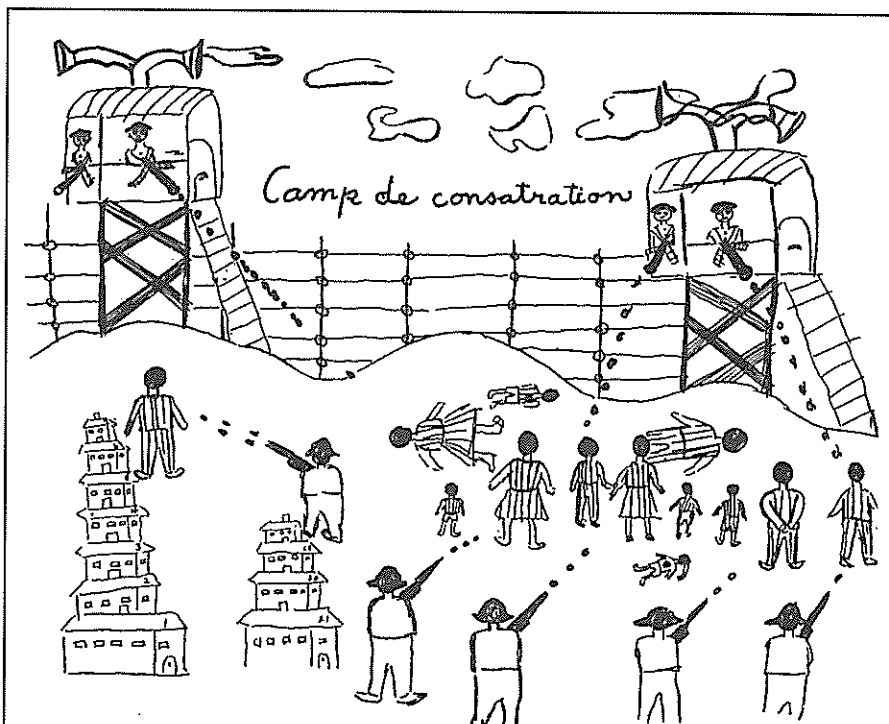 Camp de consatration